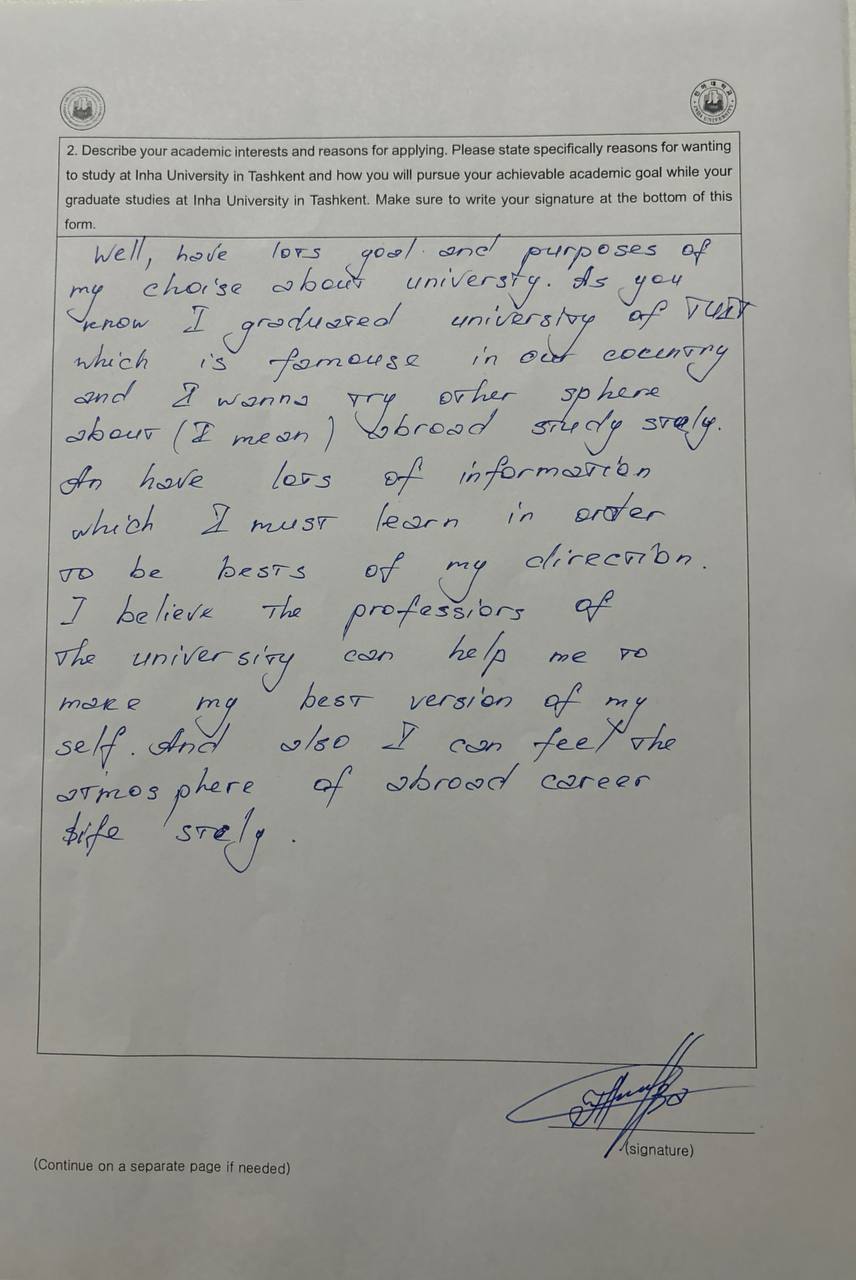 인하대학교
INHA UNIVERSITY
2. Describe your academic interests and reasons for applying. Please state specifically reasons for wanting
to study at Inha University in Tashkent and how you will pursue your achievable academic goal while your
graduate studies at Inha University in Tashkent. Make sure to write your signature at the bottom of this
form.
Well, have lots goal and purposes of
my choise about universty. As you
know I graduated university of TUIT
which is famouse in our country
and I wanna try other sphere
about (I mean) abroad study stely.
An have lots of information
which I must learn in order
to be bests of my direction.
I believe the professiors of
the university can help me to
make my best version of my
self. And also I can feel the
atmosphere of abroad career
life stely.
(signature)
(Continue on a separate page if needed)